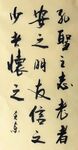 孔圣之志老者
安之朋友信之
少者怀之